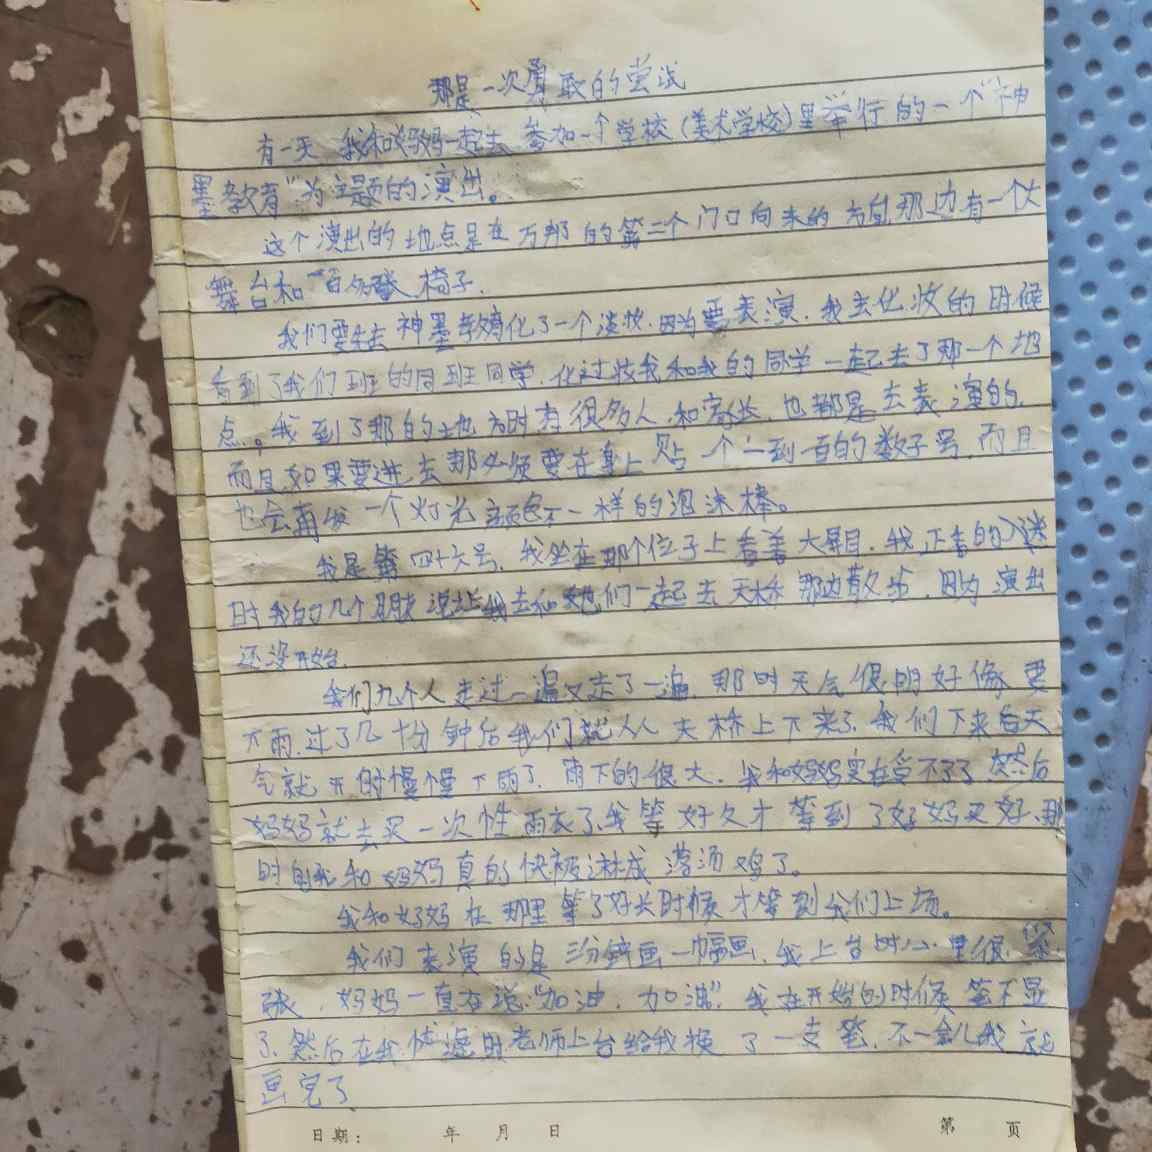 那是一次勇敢的尝试
有一天 我和妈妈一起去 参加一个学校(美术学校)里举行的一个“神
墨教育”为主题的演出。
这个演出的地点是在万邦的第二个门口向来的方向那边有一个大
舞台和一百多张椅子.
我们要先去神墨教育化了一个淡妆.因为要表演.我去化妆的时候
看到了我们班的同班同学.化过妆我和我的同学一起去了那一个地
点。我到了那的地方时有很多人.和家长 也都是去表演的.
而且如果要进去那必须要在身上贴一个一到一百的数子号.而且
也会再发一个灯光颜色不一样的泡沫棒。
我是第四十六号.我坐在那个位子上看着大屏目.我正看的入迷
时我的几个朋友说让我去和她们一起去天桥那边散步.因为演出
还没开始.
我们九个人走过一遍又走了一遍.那时天气很明好像要
下雨.过了几十分钟后我们就从天桥上下来了.我们下来后天
气就开时慢慢下雨了.雨下的很大.我和妈妈实在受不了了然后
妈妈就去买一次性雨衣了.我等好久才等到了妈妈买好、那
时的我和妈妈真的快被淋成落汤鸡了。
我和妈妈在那里等了好长时候才等到我们上场。
我们表演的是三分钟画一幅画.我上台时心里很紧
张.妈妈一直在说:“加油.加油”.我在开始的时候笔不显
了.然后在我焦虑时老师上台给我换了一支笔.不一会儿我就
画完了
日期: 年 月 日 第 页